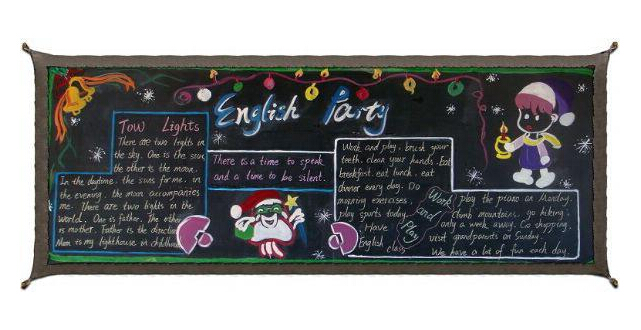 English Party
Tow Lights
There are two lights in
the sky. One is the sun,
the other is the moon.
In the daytime, the suns for me, in
the evening, the moon accompanies
me. There are two lights in the
world. One is father. The other
is mother. Father is the direction
Mom is my lighthouse in childhood
There is a time to speak
and a time to be silent.
Work and play, brush your
teeth, clean your hands. Eat
breakfast, eat lunch, eat
dinner every day. Do
morning exercises,
play sports today.
Have
English
class
Work
and
Play
play the piano on Monday,
climb mountains, go hiking,
only a week away. Go shopping,
visit grandparents on Sunday.
We have a lot of fun each day.